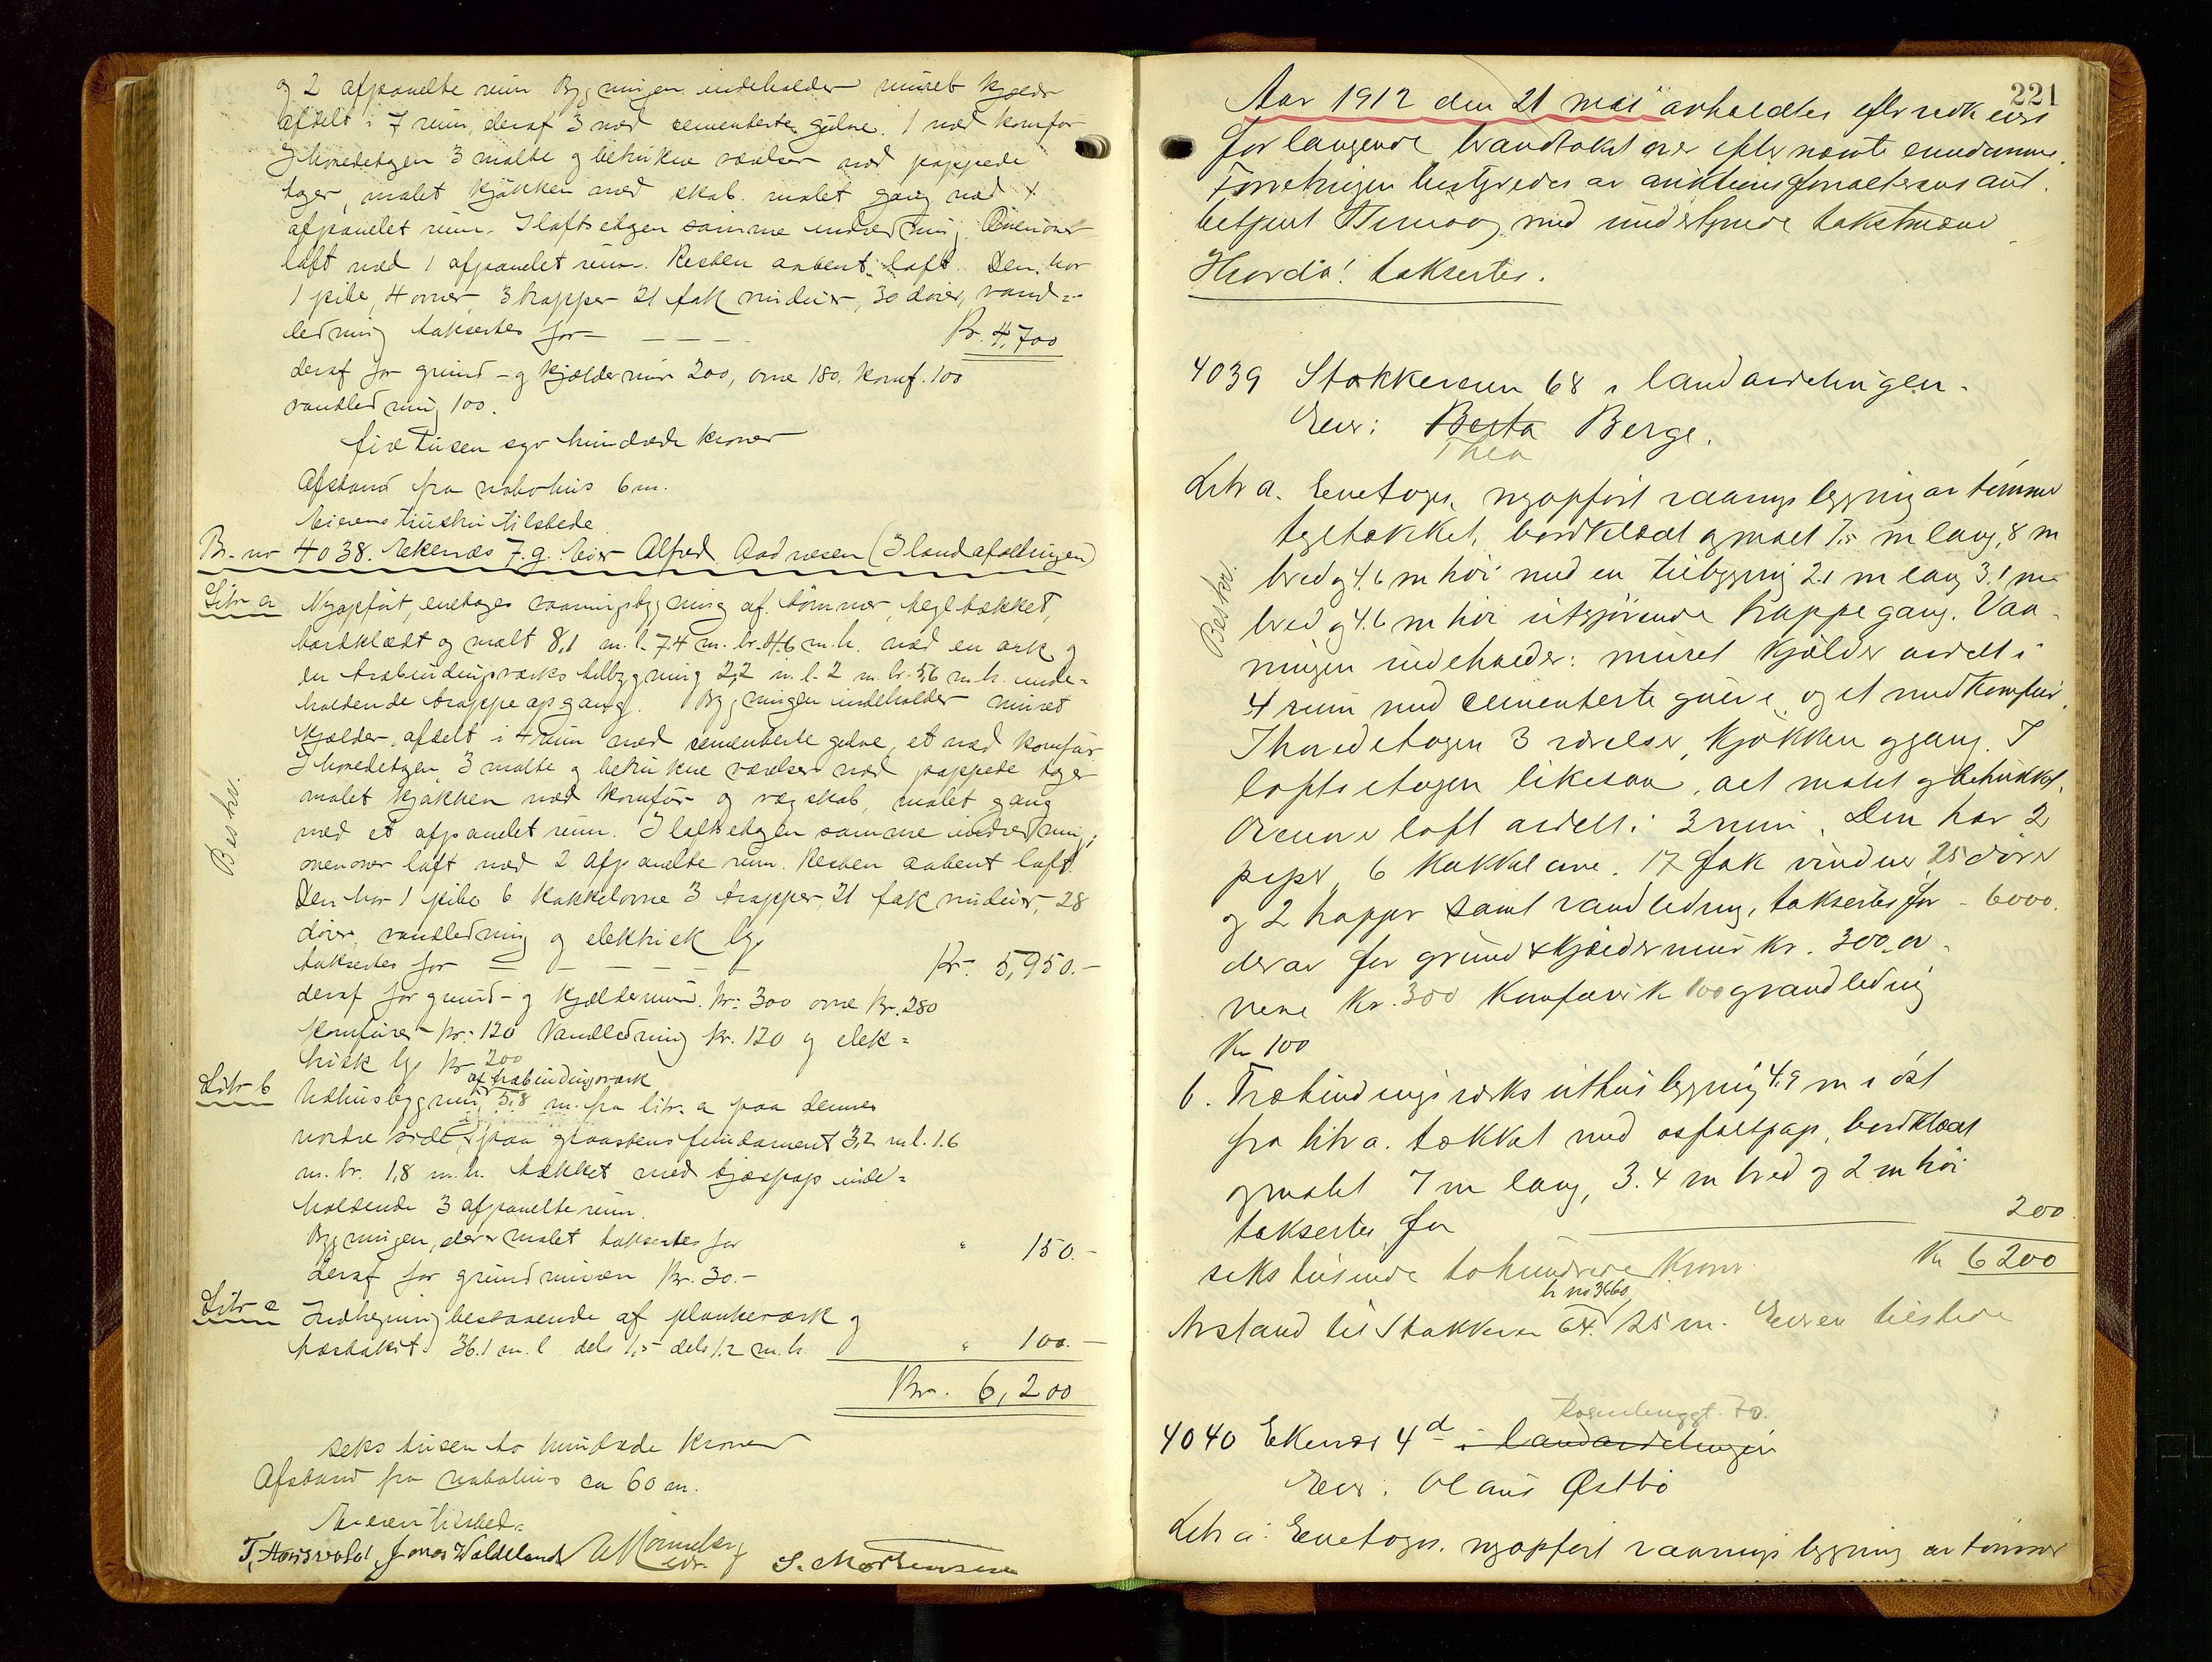 og 2 afpanelte rum Bygningen indeholder muret kjælder
afdelt i 7 rum, deraf 3 med cementerte gulve. 1 med komfør
I hovedetagen 3 malte og betrukne værelser med pappede
tager, malet kjøkken med skab. malet gang med 1
afpanelet rum. I loftsetagen samme indredning. Ovenover
loft med 1 afpanelet rum. Resten aabent loft. Den har
1 pibe, 4 ovner 3 trapper 21 fak vinduer, 30 døre, vand=
ledning taksertes for — — — — Kr. 4,700
deraf for grund- og kjældermur 200, ovne 180, komf. 100
vandledning 100.
fire tusen syv hundrede kroner
Afstand fra nabohus 6 m.
Eierens hustru tilstede
Br. no 4038. Ekenæs 7.g. Eier Alfred Aadnesen (I landafdelingen)
Litr a Nyopført, enetages vaaningsbygning af tømmer, tegltækket,
bordklædt og malt 8,1 m. l. 7.4 m. br. 4.6 m. h. med en ark og
en træbindingsværks tilbygning 2,2 m. l. 2 m. br. 5,6 m. h. inde=
holdende trappeopgang. Bygningen indeholder muret
Beskr.
kjælder, afdelt i 4 rum med cementerte gulve, et med komfør
I hovedetagen 3 malte og betrukne værelser med pappede tager
malet kjøkken med komfør og vægskab, malet gang
med et afpanelet rum. I loftsetagen samme indredning;
ovenover loft med 2 afpanelte rum. Resten aabent loft.
Den har 1 pibe 6 kakkelovne 3 trapper, 21 fak vinduer, 28
døre, vandledning og elektrisk lys
taksertes for — — — — — Kr. 5,950.-
deraf for grund- og kjældermur Kr. 300 ovne Kr. 280
komfører Kr. 120 Vandledning Kr. 120 og elek=
trisk lys Kr 200
af træbindingsværk
Litr b Udhusbygning 5,8 m. fra litr. a paa dennes
nordre side, paa graastensfundament 3,2 m. l. 1.6
m. br. 1,8 m. h. tækket med tjærepap inde=
holdende 3 afpanelte rum.
Bygningen, der er malet taksertes for " 150.-
deraf for grundmuren Kr. 30.-
Litr c Indhegning bestaaende af plankeværk og
36.1 m. l. dels 1,5 dels 1.2 m. h. " 100.-
Kr. 6,200
seks tusen to hundrede kroner
Afstand fra nabohus ca 60 m.
Eieren tilsted.
Jonas Waldeland S. Mortensen
221
Aar 1912 den 21 mai avholdtes efter rekvisi
forlangende brandtakst over efternævnte eiendomme.
Forretningen bestyredes av auktionsforvalterens aut.
betjent med undertegnede takstmænd
Hvorda! taksertes.
4039 Stokkeveien 68 i landavdelingen.
Eier: Berta Berge.
Thea
Litr a. Enetages, nyopført vaaningsbygning av tømmer
tegltækket, bordklædt og malt 7.5 m lang, 8 m
Beskr.
bred og 4.6 m høi med en tilbygning 2.1 m lang 3.1 m
bred og 4.6 m høi utgjørende trappegang. Vaa-
ningen indeholder: muret kjælder avdelt i
4 rum med cementerte gulve, og et med komfur.
I hovedetagen 3 værelser, kjøkken og gang. I
loftsetagen likesaa, alt malet og betrukket.
Ovenover loft avdelt i 3 rum. Den har 2
piper, 6 kakkelovne. 17 fak vinduer 25 dører
og 2 trapper samt vandledning, taksertes for - 6000.
derav for grund & kjældermur kr. 300, ov-
nene Kr. 300 Komfurer k 100 og vandledning
Kr 100
b. Træbindingsværks uthusbygning 4.9 m i øst
fra litr a. tækket med asfaltpap, bordklædt
og malet 7 m lang, 3.4 m bred og 2 m høi
taksertes for 200.
seks tusinde tohundrede kroner Kr 6200
br no 3660
Avstand til Stokkevn 64. 25 m. Eieren tilstede
Rosenberggt. 70.
4040 Ekenæs 4d i landavdelingen
Eier: Olaus Østbø
Litr a. Enetages, nyopført vaaningsbygning av tømmer